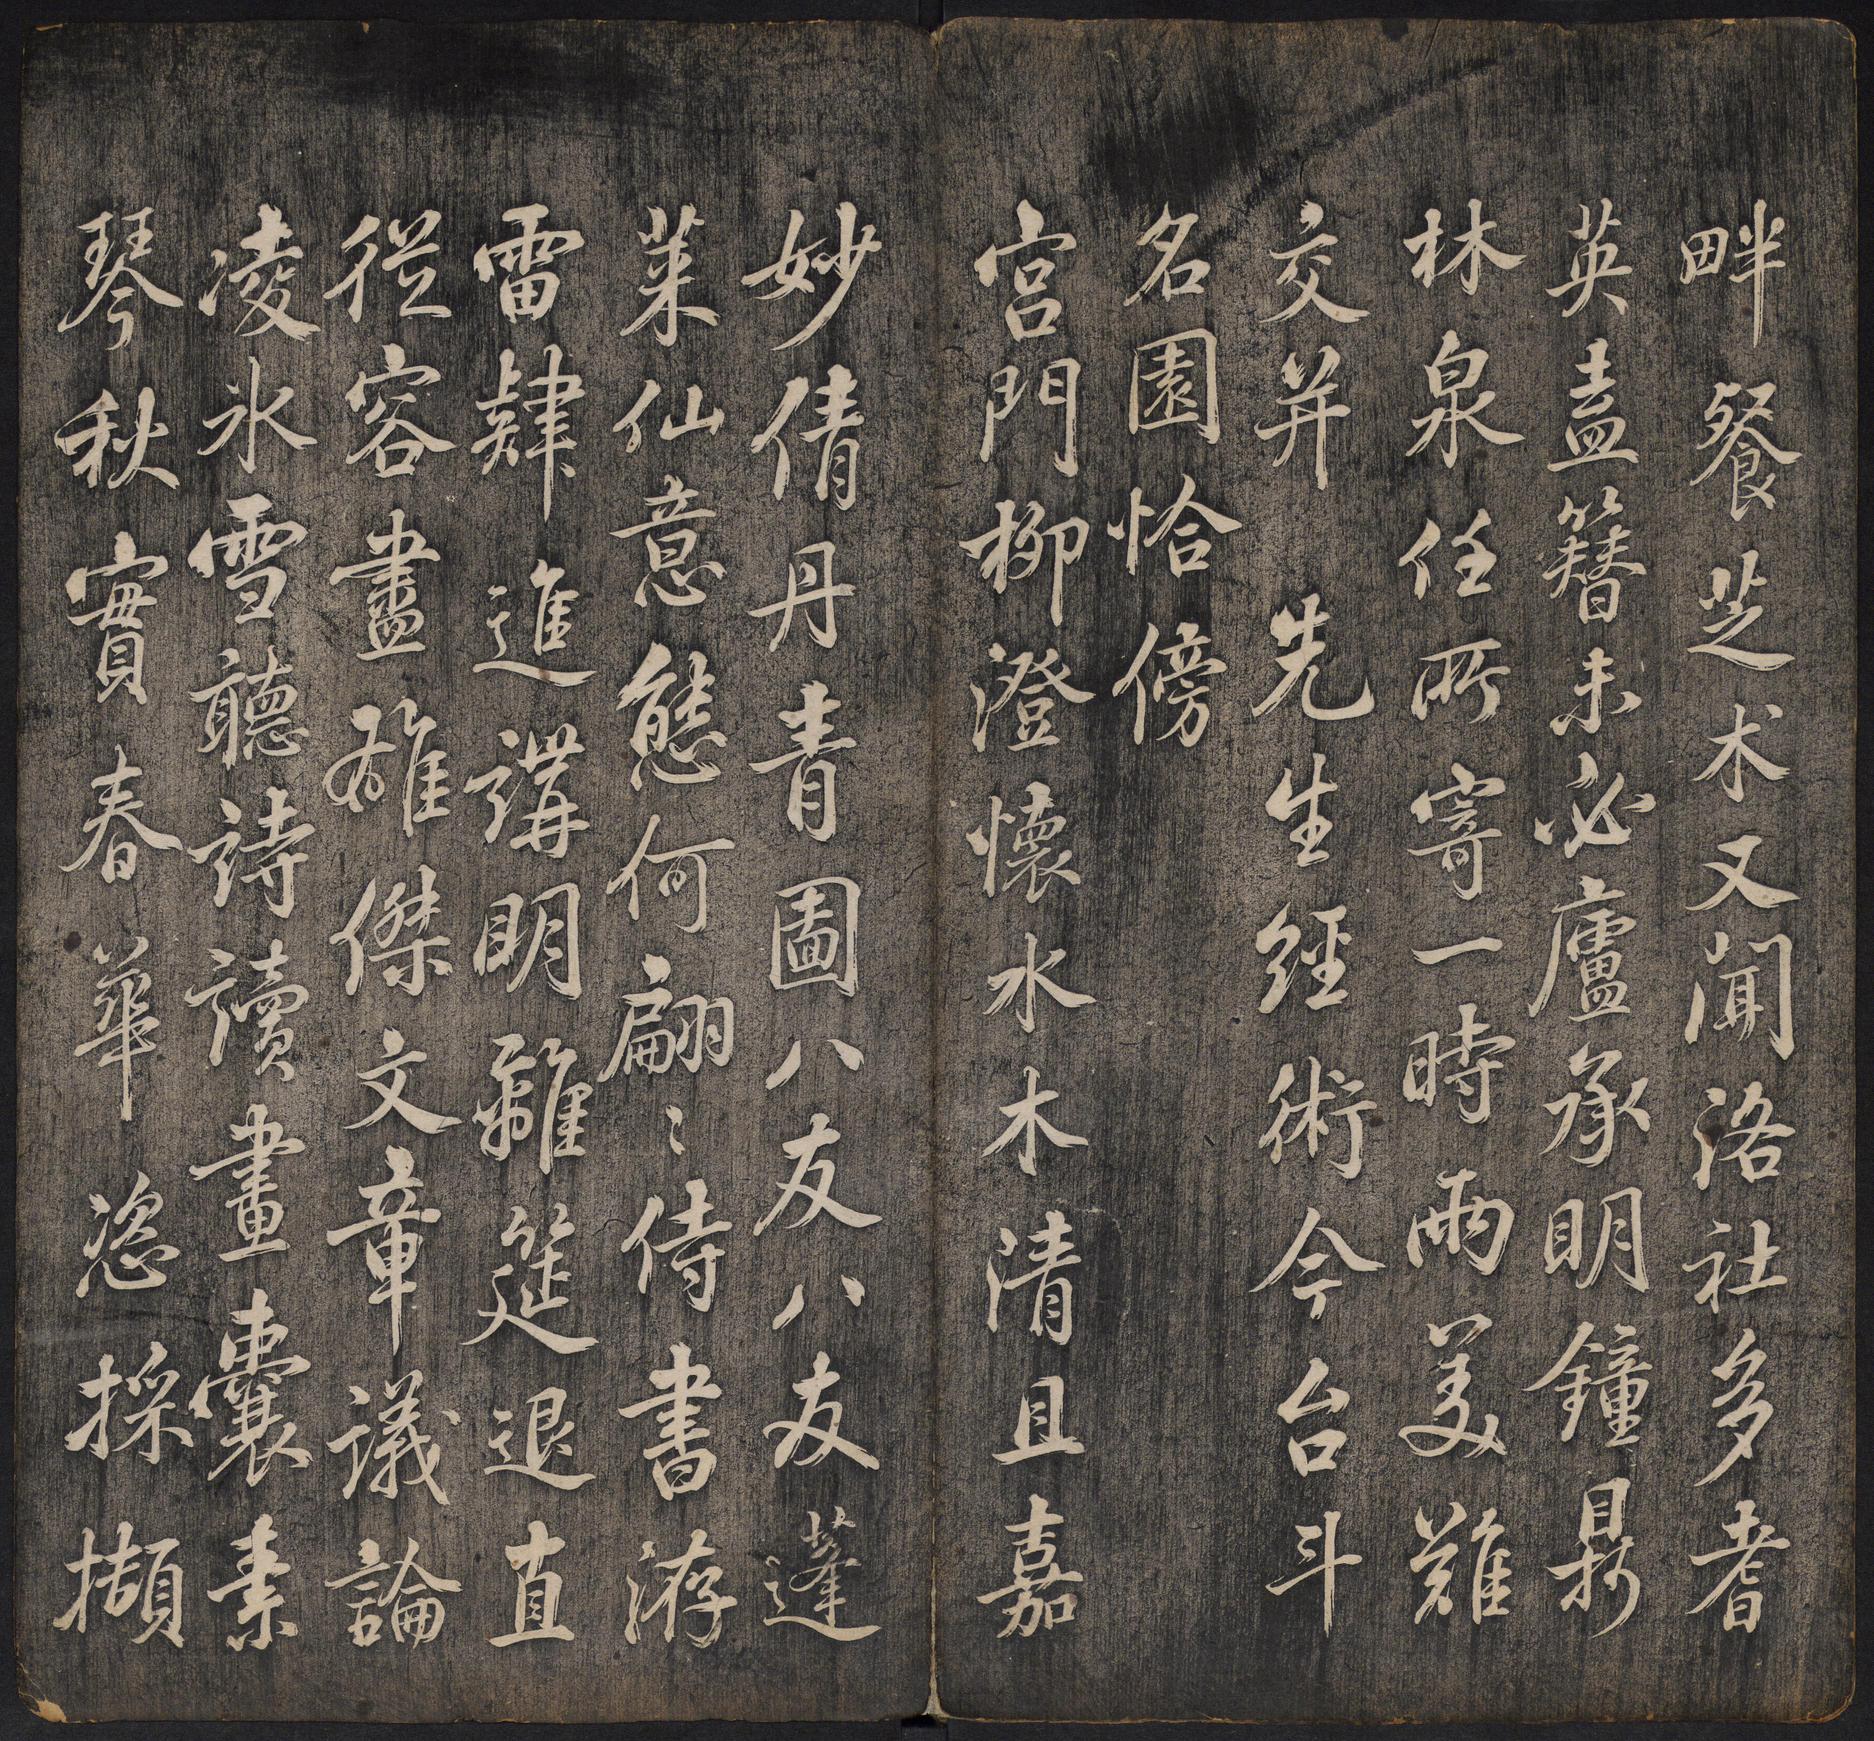 畔餐芝术又聞洛社多耆
英盍簪未必廬承明鐘鼎
林泉任所寄一時兩美難
交并先生經術今台斗
名園恰傍
宮門柳澄懷水木清且嘉
妙倩丹青圖八友八友蓬
萊仙意態何翩〻侍書游
雷肆進講明離筵退直
從容盡雄傑文章議論
凌氷雪聽詩讀畫囊素
琴秋實春華恣採擷